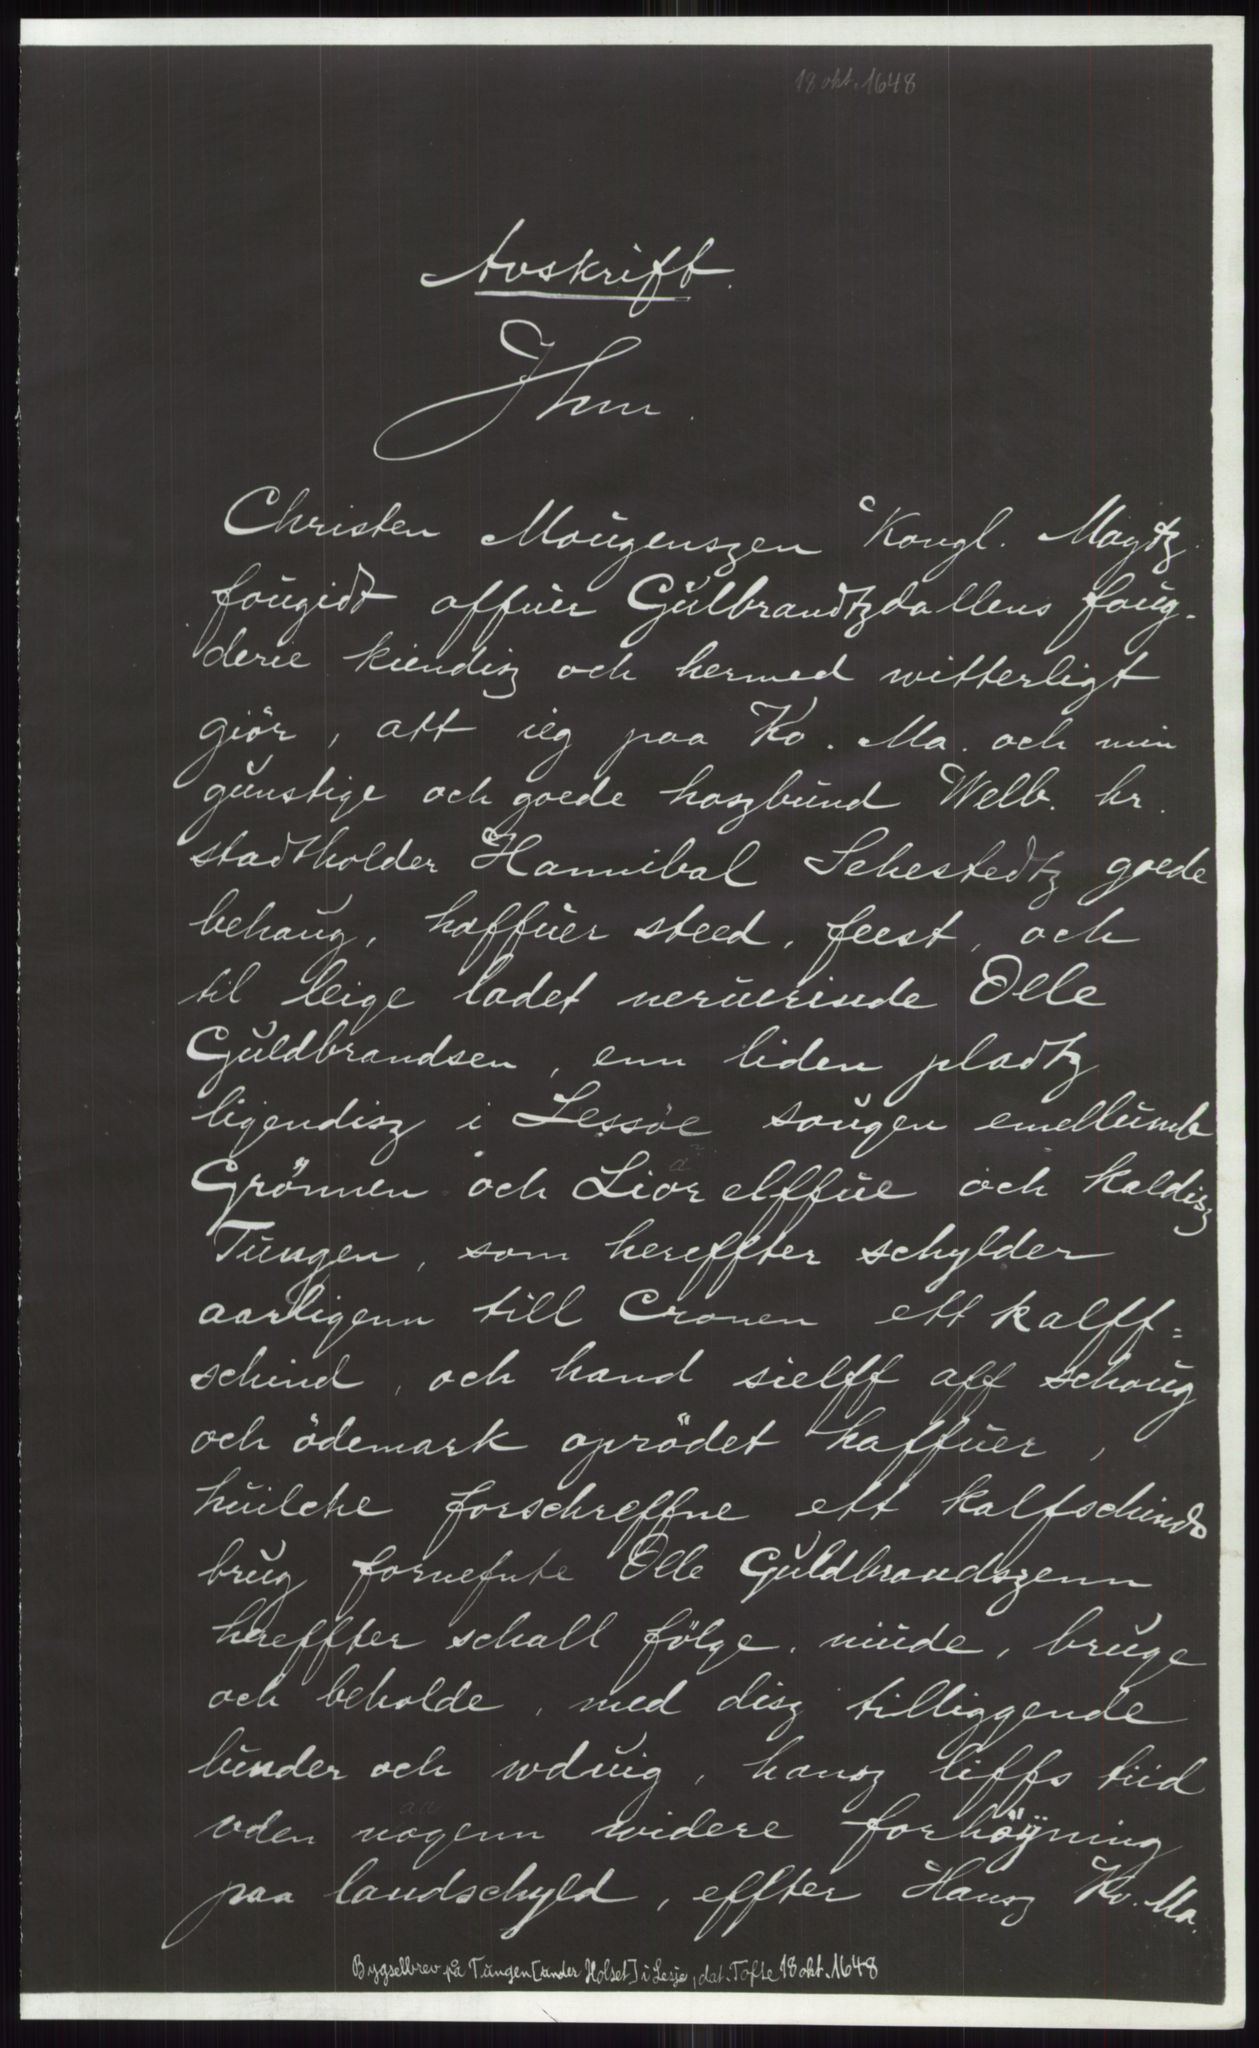 18 okt. 1648
Avskrift.
Jhm.
Christen Mougenszen Kongl. Maytz.
fougidt offuer Gulbrandtzdallens foug-
derie kiendisz och hermed witterligt
giör, att ieg paa Ko. Ma. och min
gunstige och goede hoszbund Welb. hr.
stadtholder Hannibal Sehestedtz goede
behaug, haffuer steed, feest, och
til leige ladet neruerinde Olle
Guldbrandsen, enn liden pladtz
ligendisz i Lessöe sougen emellumb
Grönnen och Lior elffue och kaldisz
Tungen, som hereffter schylder
aarligenn till Cronen ett kalff=
schind, och hand sielff aff schoug
och ödemark oprödet haffuer,
huilche forschreffne ett kalfschinds
brug fornefnte Olle Guldbrandszenn
hereffter schall fölge, niude, bruge
och beholde, med disz tilliggende
lunder och wduig, hansz liffs tiid
vden nogenn widere forhöyning
paa landschyld, effter Hansz Ko. Ma.
Bygselbrev på Tungen [under Holset] i Lesje, dat. Tofte 18 okt. 1648